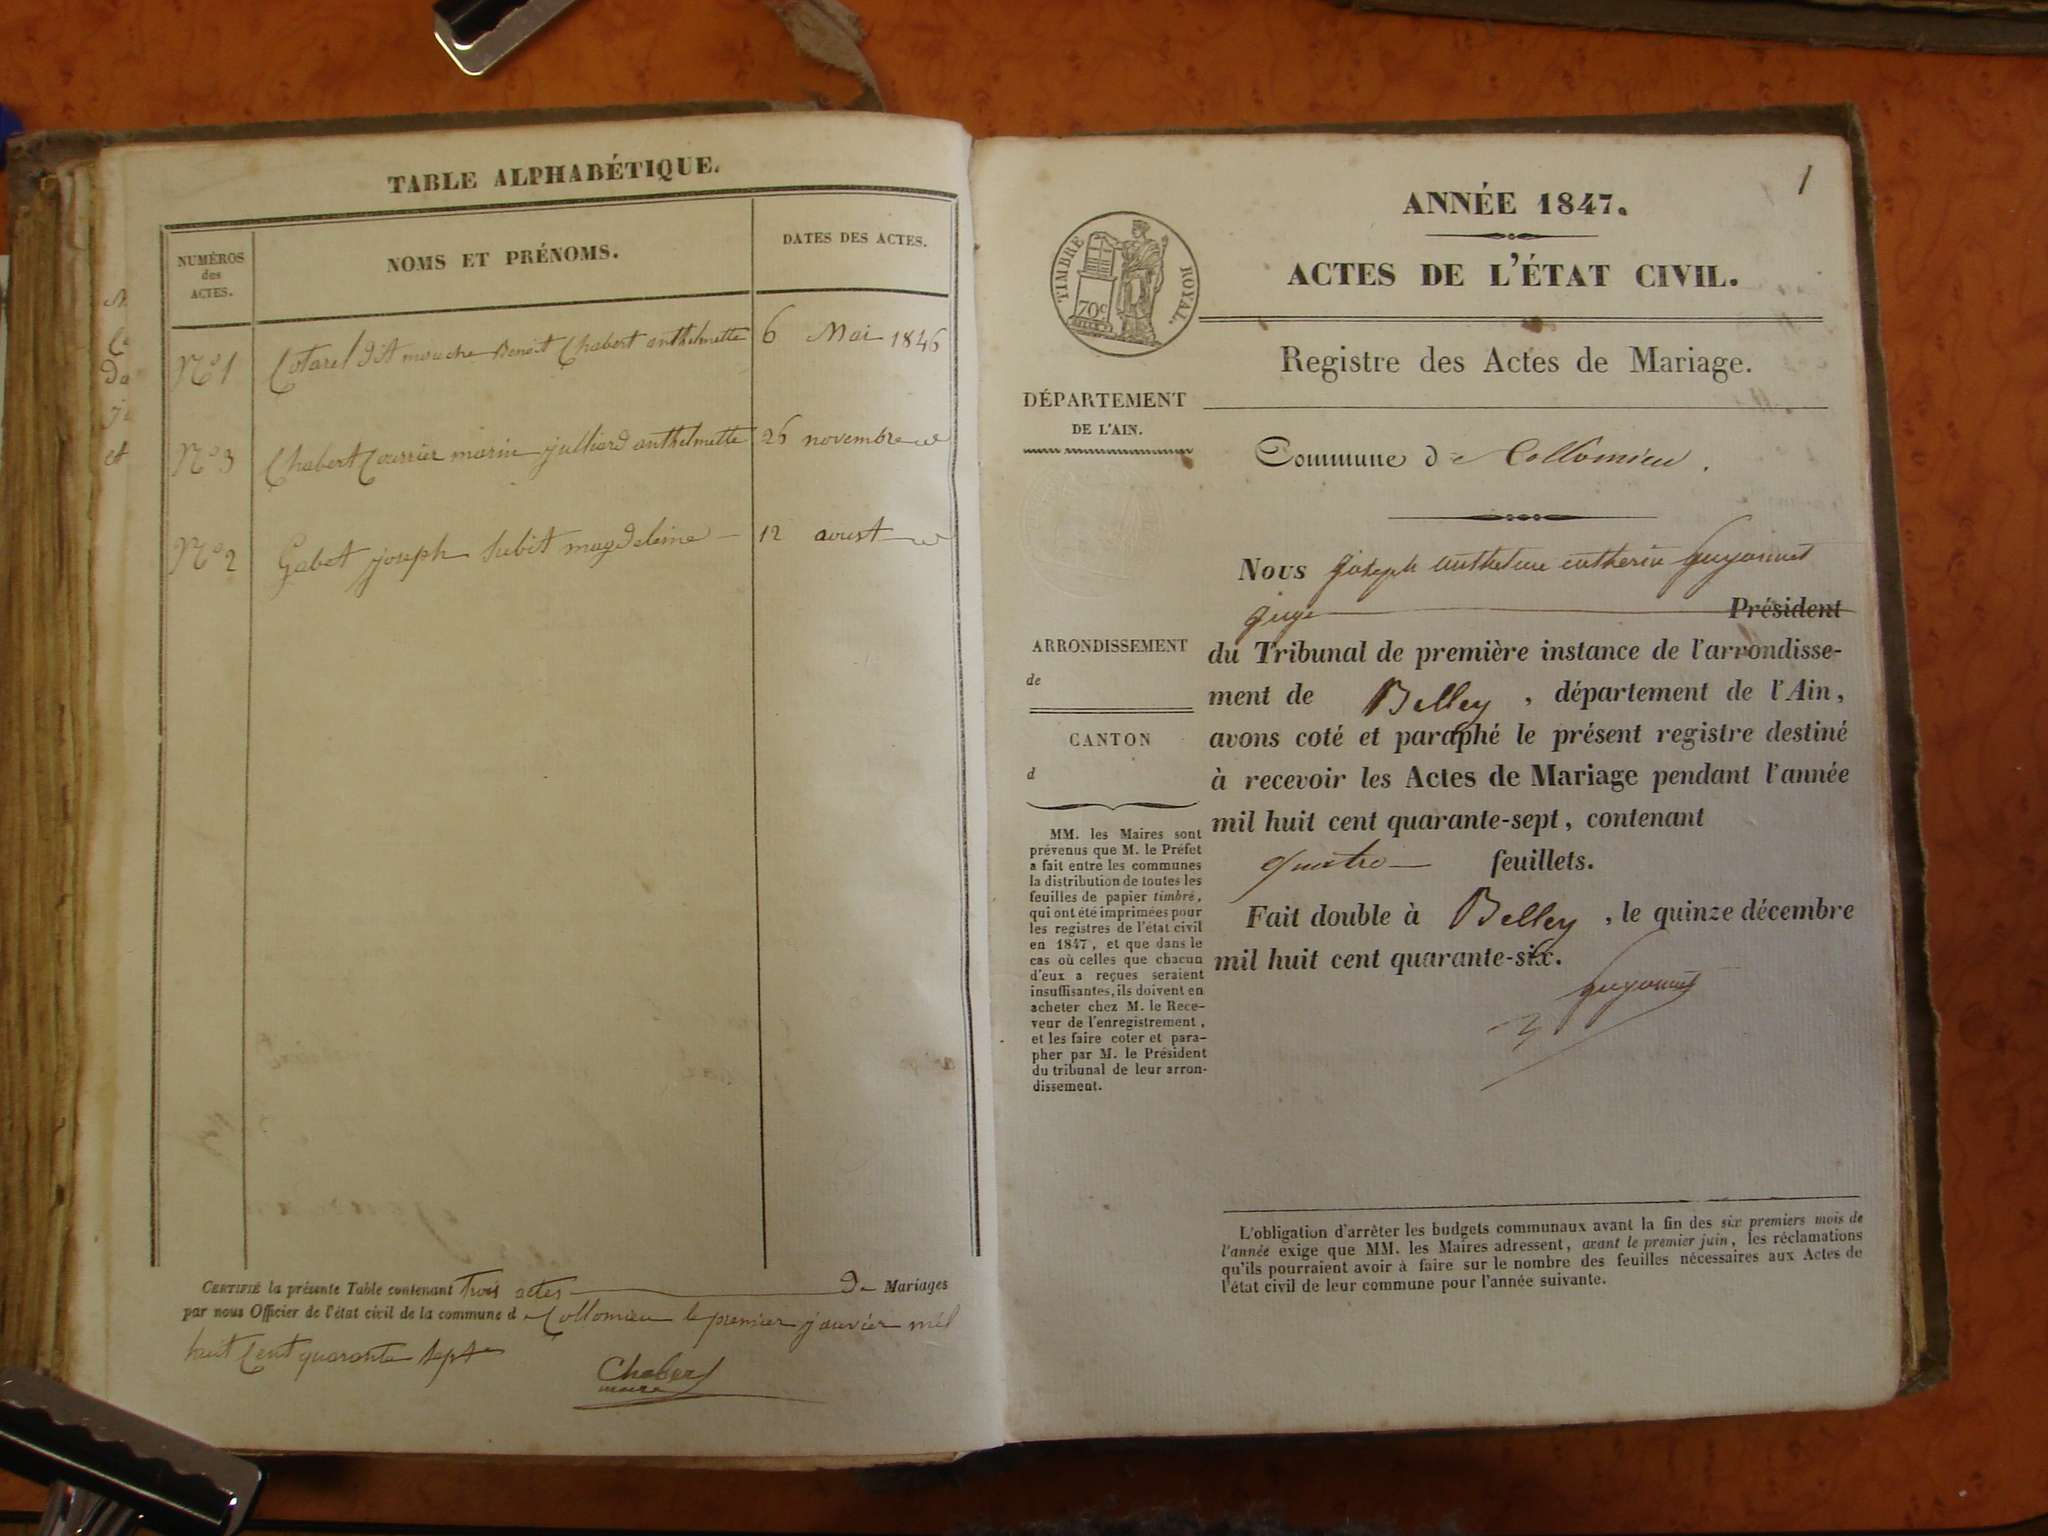 TABLE ALPHABÉTIQUE.
NUMÉROS
des
ACTES.
NOMS ET PRÉNOMS.
DATES DES ACTES.
N°1 Cotarel dit mouche Benoit Chabert anthelmette 6 Mai 1846
N°3 Chabert Courrier marin julliard anthelmette 26 novembre
N°2 Gabet joseph Subit magdeleine 12 aoust
CERTIFIÉ la présente Table contenant Trois actes De Mariages
par nous Officier de l'état civil de la commune d e Collomieu le premier janvier mil
huit Cent quarante Sept
Chabert
maire
1
ANNÉE 1847.
ACTES DE L'ÉTAT CIVIL.
TIMBRE ROYAL.
70c
Registre des Actes de Mariage.
DÉPARTEMENT
DE L'AIN.
Commune de Collomieu.
Nous Joseph anthelme Guyonnet
juge Président
du Tribunal de première instance de l'arrondisse-
ment de Belley, département de l'Ain,
avons coté et paraphé le présent registre destiné
à recevoir les Actes de Mariage pendant l'année
mil huit cent quarante-sept, contenant
quatre feuillets.
Fait double à Belley, le quinze décembre
mil huit cent quarante-six.
Guyonnet
ARRONDISSEMENT
de
CANTON
d
MM. les Maires sont
prévenus que M. le Préfet
a fait entre les communes
la distribution de toutes les
feuilles de papier timbré,
qui ont été imprimées pour
les registres de l'état civil
en 1847, et que dans le
cas où celles que chacun
d'eux a reçues seraient
insuffisantes, ils doivent en
acheter chez M. le Rece-
veur de l'enregistrement,
et les faire coter et para-
pher par M. le Président
du tribunal de leur arron-
dissement.
L'obligation d'arrêter les budgets communaux avant la fin des six premiers mois de
l'année exige que MM. les Maires adressent, avant le premier juin, les réclamations
qu'ils pourraient avoir à faire sur le nombre des feuilles nécessaires aux Actes de
l'état civil de leur commune pour l'année suivante.